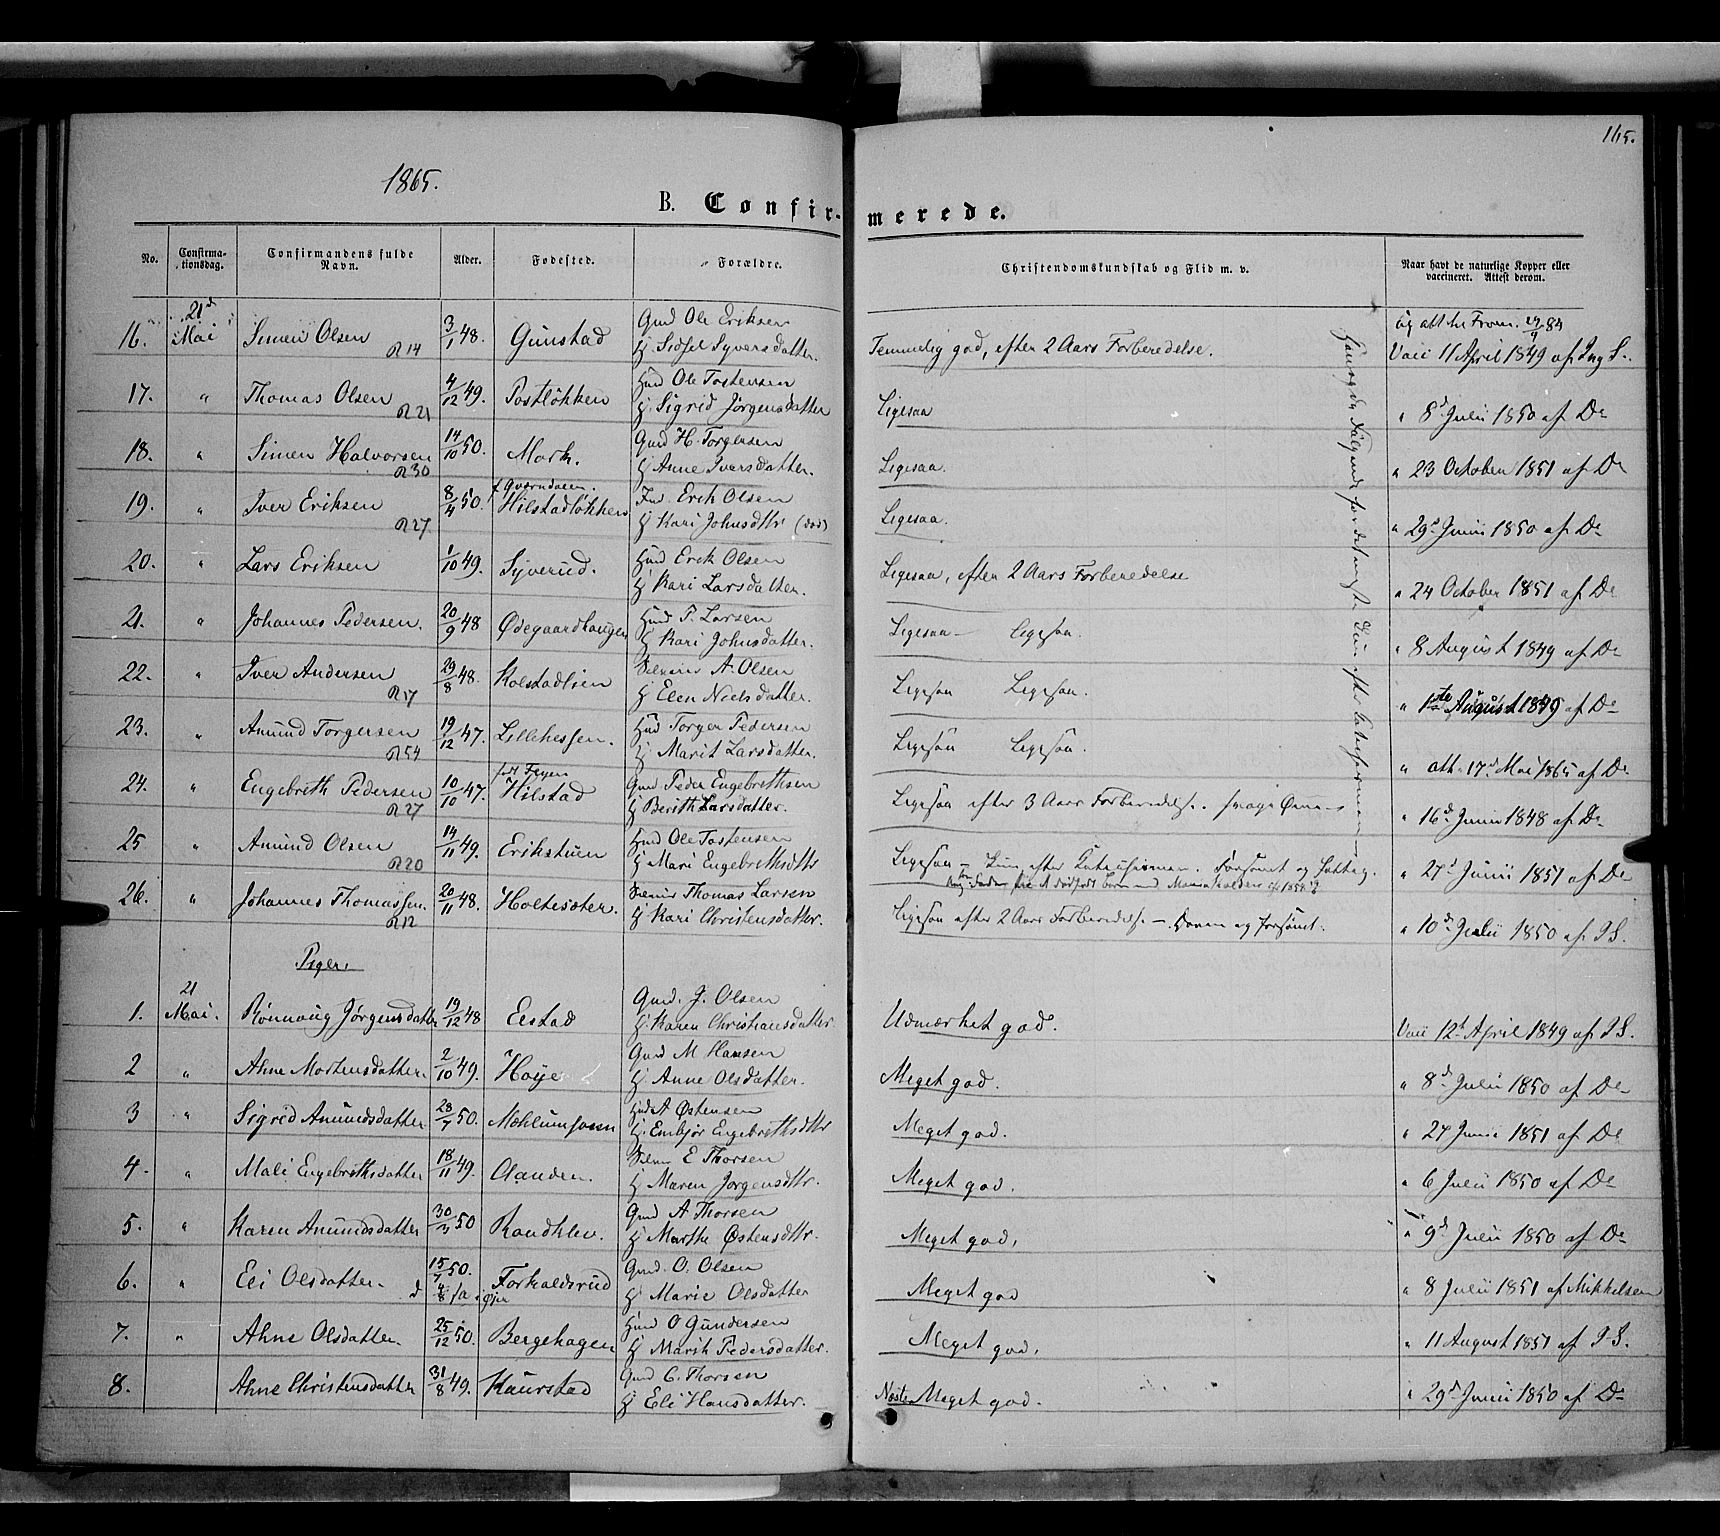 165.
1865.
B. Confirmerede.
No. Confirmationsdag. Confirmandens fulde Navn. Alder. Fødested. Forældre. Christendomskundskab og Flid m. v. Naar havt de naturlige Kopper eller vaccineret. Attest derom.
21d
16. Mai Simen Olsen R14 3/1 48. Gunstad Gmd Ole Eriksen
H Sidsel Syversdatter. Temmelig god, efter 2 Aars Forberedelse. Vacc 11 April 1849 af Ing S.
17. " Thomas Olsen R21 4/12 49. Postløkken Hmd Ole Tostensen
H Sigrid Jørgensdatter Ligesaa " 8d Julii 1850 af Do
18. " Simen Halvorsen R30 14/10 50. Mork. Gmd H. Torgersen
H Anne Iversdatter. Ligesaa. " 23 October 1851 af Do
19. " Iver Eriksen R27 8/4 50. Hilstadløkken Ind. Erik Olsen
H Kari Johnsdttr (død) Ligesaa. " 29d Junii 1850 af Do
20. " Lars Eriksen 1/10 49. Syverud. Hmd Erik Olsen
H Kari Larsdatter. Ligesaa, efter 2 Aars Forberedelse " 24 October 1851 af Do
21. " Johannes Pedersen. 20/9 48 Ødegaardhaugen Hmd P. Larsen
H Kari Johnsdatter. Ligesaa - Ligesaa. " 8 August 1849 af Do
22. " Iver Andersen R17 29/8 48. Kolstadlien A. Olsen
H Elen Nielsdatter. Ligesaa Ligesaa. " 1ste August 1849 af Do
23. " Amund Torgersen R54 19/12 47. Lillehessen. Hmd Torger Pedersen
H Marit Larsdatter. Ligesaa Ligesaa. " att. 17d Mai 1865 af Do
24. " Engebreth Pedersen R27 10/10 47. Hilstad Gmd Peder Engebrethsen
H Berith Larsdatter. Ligesaa efter 3 Aars Forberedelse. " 16d Junii 1848 af Do
25 " Amund Olsen R20 14/11 49. Erikstuen Hmd Ole Tostensen
H Mari Engebrethsdttr Ligesaa - efter Katechismen. Forsømt og " 27d Junii 1851 af Do
26. " Johannes Thomassen. R12 20/11 48. Holtesæter. Thomas Larsen
H Kari Christensdatter. Ligesaa efter 2 Aars Forberedelse - Doven og forsømt. " 10d Julii 1850 af I S.
Piger.
21
1. Mai. Rønnoug Jørgensdatter 19/12 48 Eestad Gmd. J. Olsen
H. Karen Christiansdatter Udmærket god. Vacc 12t April 1849 af I S.
2 " Ahne Mortensdatter. 2/10 49. Høye Gmd M Hansen
H Anne Olsdatter. Meget god. " 8d Julii 1850 af Do
3 " Sigrid Amundsdatter 28/7 50. Hmd A Østensen
H. Embjør Engebrethsdttr Meget god. " 27 Junii 1851 af Do
4. " Mali Engebrethsdatter 18/11 49. Olanden. E Thorsen
H Maren Jørgensdttr. Meget god. " 6 Julii 1850 af Do
5. " Karen Amundsdatter 30/3 50 Randklev. Gmd A Thorsen
H Marthe Østensdttr. Meget god. " 9d Julii 1850 af Do
6. " Eli Olsdatter 15/7 50. Forkaldsrud Gmd. O. Olsen
H Marie Olsdatter Meget god " 8 Julii 1851 af Mikkelsen
7. " Ahne Olsdatter. 25/12 50. Bergehagen Hmd O Gundersen
H Marit Pedersdatter. Meget god. " 11 August 1851 af I S.
8. Ahne Christensdatter 31/8 49. Kaurstad Gmd C. Thorsen
H Eli Hansdatter. Næsten Meget god. " 29d Junii 1850 af Do